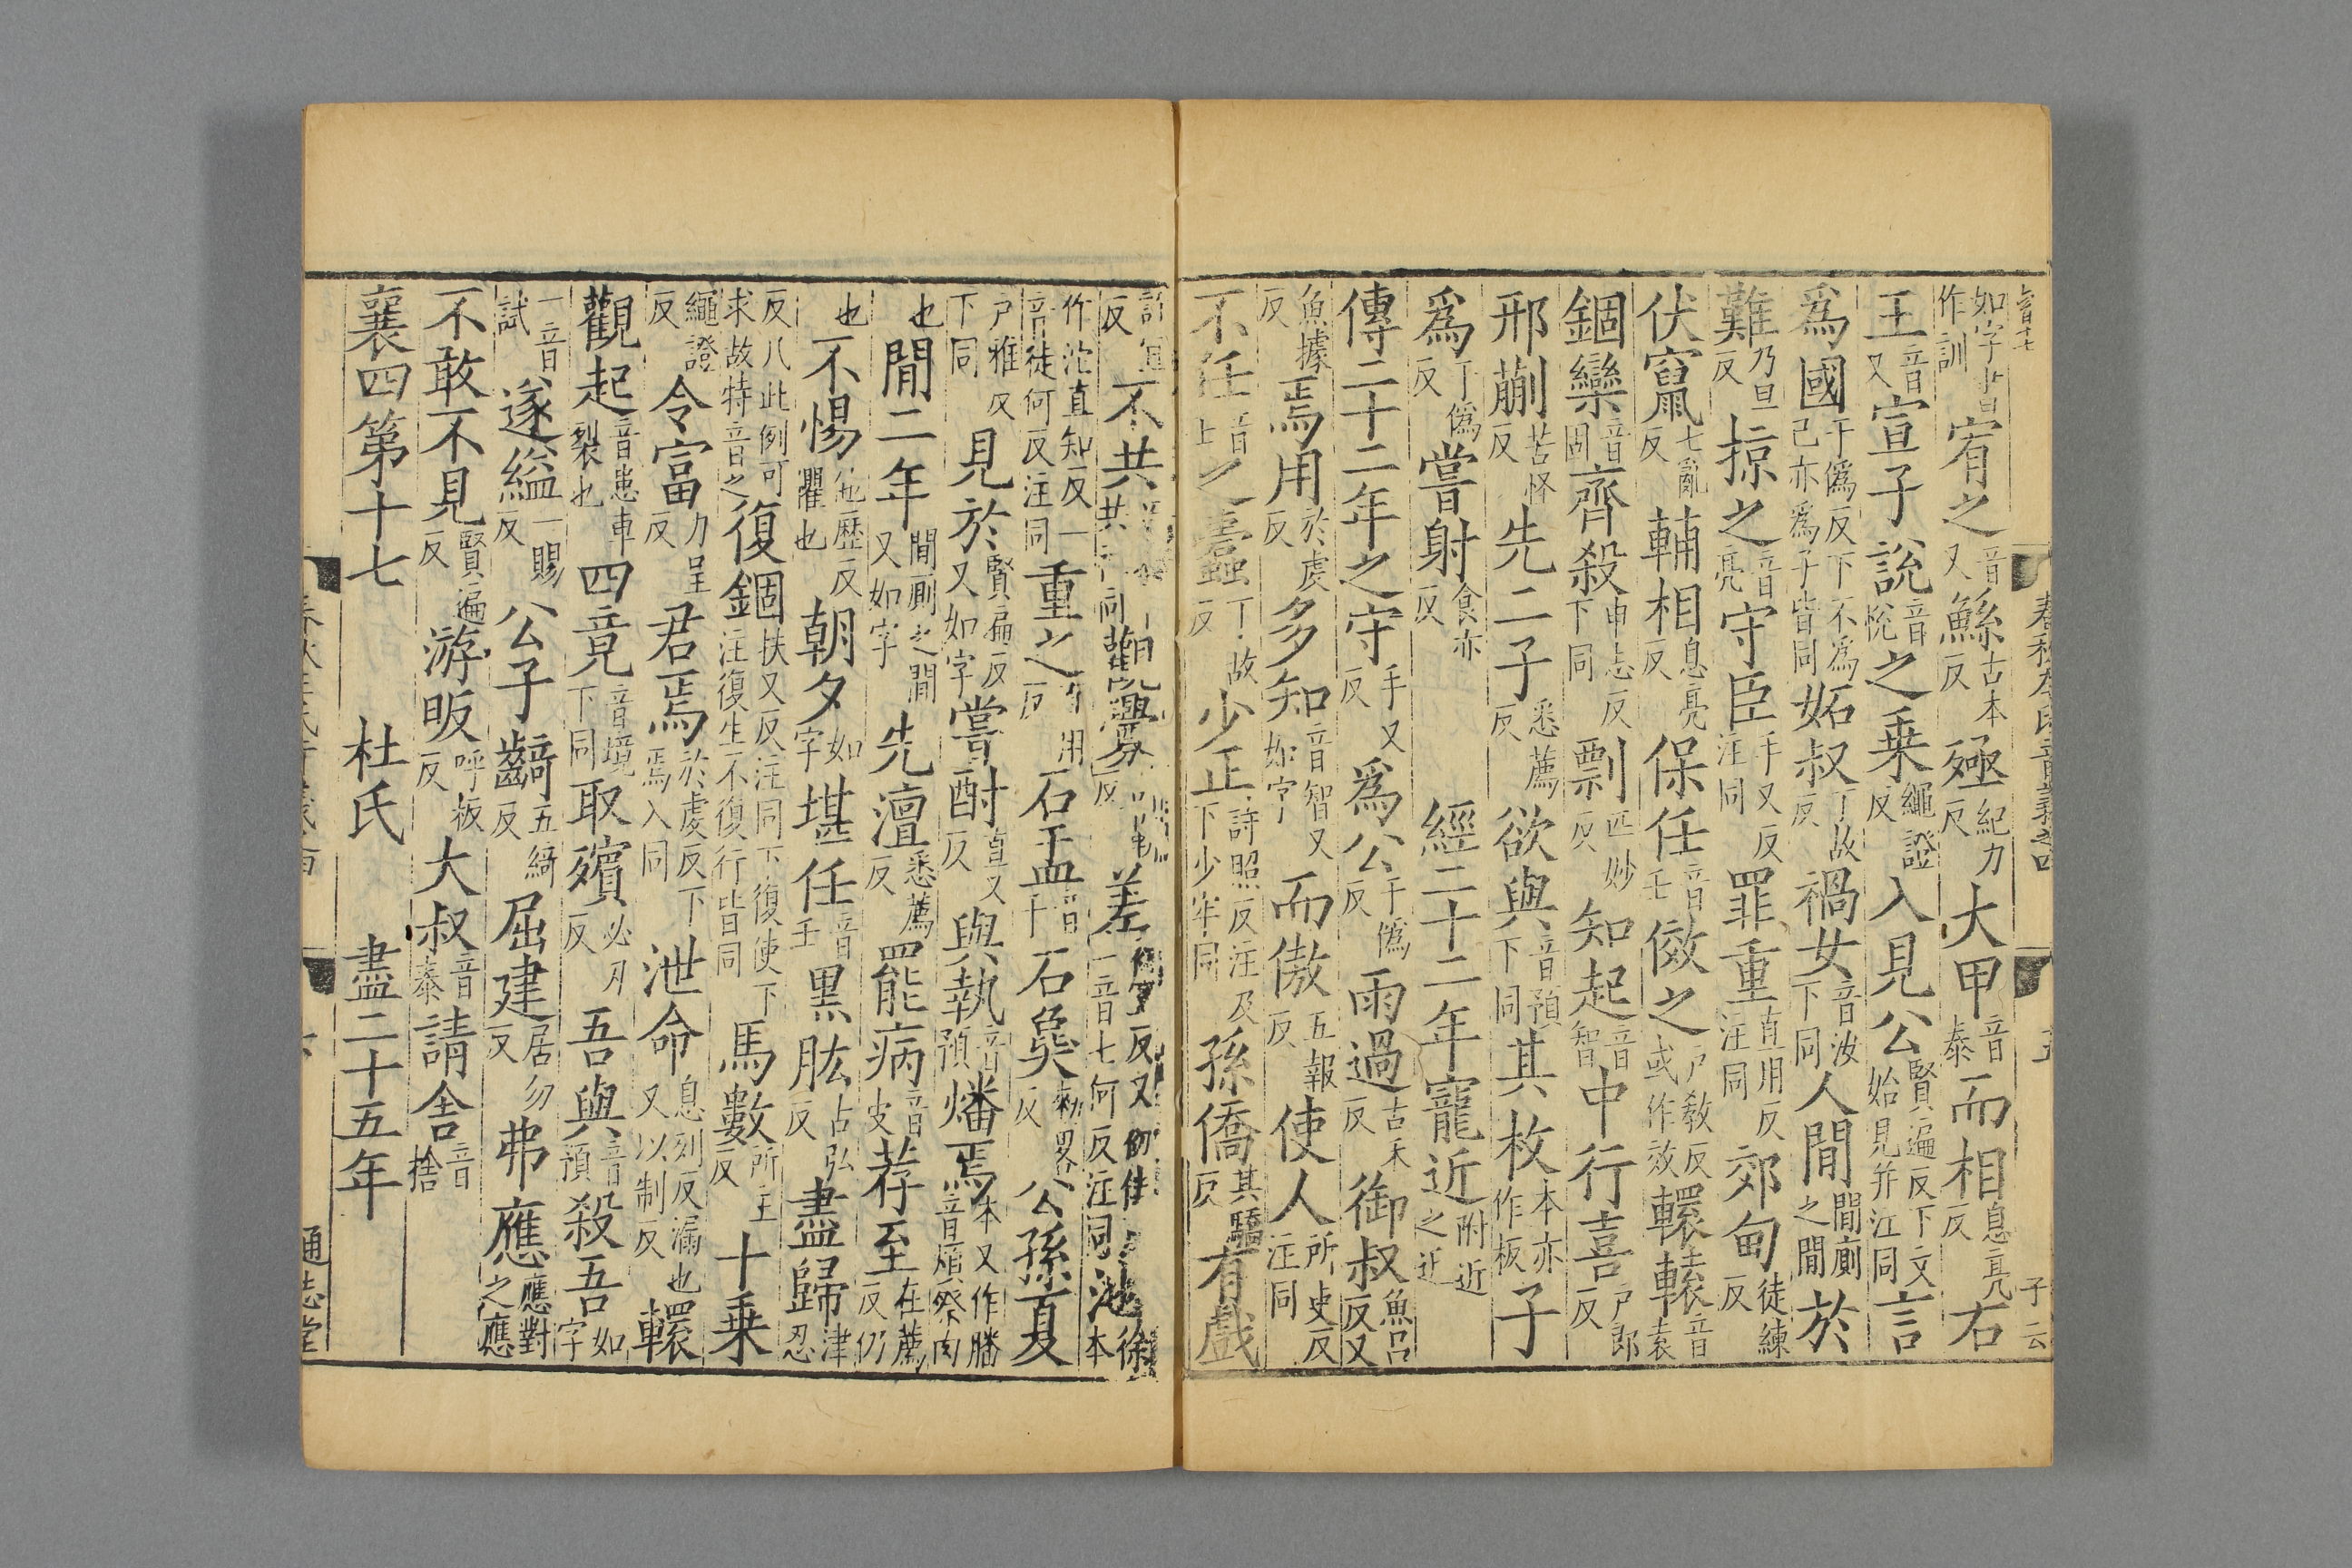 如字
作訓宥之音又鯀古本反殛紀力反大甲音泰而相息亮反右
王音又宣子說音悅之乗繩證反入見公賢遍反下文始見并注同言
爲國于僞反下不爲己亦爲子皆同妬叔丁故反禍女音汝下同人閒閒廁之閒於
難乃旦反掠之音亮守臣手又反注同罪重直用反注同郊甸徒練反
伏竄七亂反輔相息亮反保任音壬傚之戶敎反或作效轘轅音袁
錮欒音固齊殺申志反下同剽匹妙反知起音智中行喜戶郎反
邢蒯苦怪反先二子悉薦反欲與音預下同其枚本亦作板子
爲于僞反嘗射食亦反經二十二年寵近附近之近
傳二十二年之守手又反爲公于僞反雨過古禾反御叔魚呂反又
魚據反焉用於虔反多知音智又如字而傲五報反使人所吏反注同
不任音壬之蠹丁故反少正詩照反注及下少年同孫僑其驕反有戲
許宜反不共觀釁差一音七何反注同池徐本
作沱直知反一音徒何反注同重之直用反石盂音于石㚟勑略反公孫夏
戶雅反下同見於賢遍反又如字嘗酎直又反與執音預燔焉本又作膰音煩祭肉
也閒二年閒廁之閒又如字先澶悉薦反罷病音皮荐至在薦反仍
也不惕他歷反懼也朝夕如字堪任音壬黒肱古弘反盡歸津忍
反八此例可求故特音之復錮扶又反注同下復使下注復生不復行皆同馬數所主反十乗
繩證反令富力呈反君焉於虔反下焉入同泄命息列反漏也又以制反轘
觀起音患車裂也四竟音境下同取殯必刃反吾與音預殺吾如字
一音試遂縊一賜反公子齮五綺反屈建居勿反弗應應對之應
不敢不見賢遍反游昄呼板反大叔音泰請舍音捨
襄四第十七 杜氏 盡二十五年
通志堂